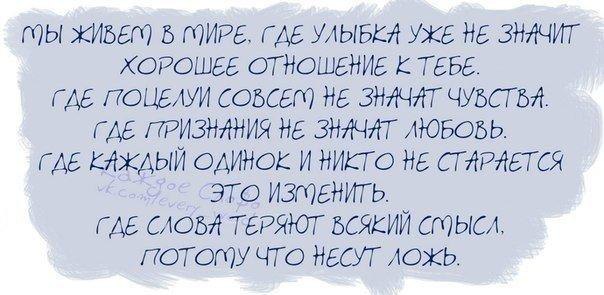 МЫ ЖИВЕМ В МИРЕ, ГДЕ УЛЫБКА УЖЕ НЕ ЗНАЧИТ
ХОРОШЕЕ ОТНОШЕНИЕ К ТЕБЕ.
ГДЕ ПОЦЕЛУИ СОВСЕМ НЕ ЗНАЧАТ ЧУВСТВА.
ГДЕ ПРИЗНАНИЯ НЕ ЗНАЧАТ ЛЮБОВЬ.
ГДЕ КАЖДЫЙ ОДИНОК И НИКТО НЕ СТАРАЕТСЯ
ЭТО ИЗМЕНИТЬ.
ГДЕ СЛОВА ТЕРЯЮТ ВСЯКИЙ СМЫСЛ,
ПОТОМУ ЧТО НЕСУТ ЛОЖЬ.
каждое